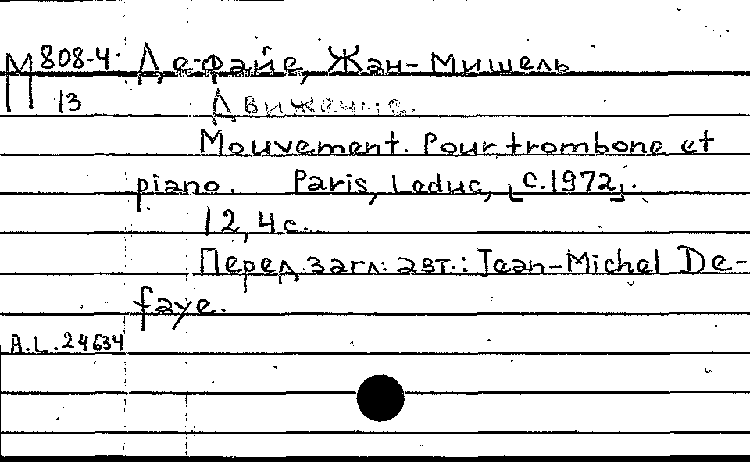 М 808-4 Де-файе, Жан-Мишель
П 13 Движение.
Mouvement. Pour trombone et
piano. Paris, Leduc, [c.1972].
12, 4 с.
Перед загл. авт.: Jean-Michel De-
faye.
A.L. 24634